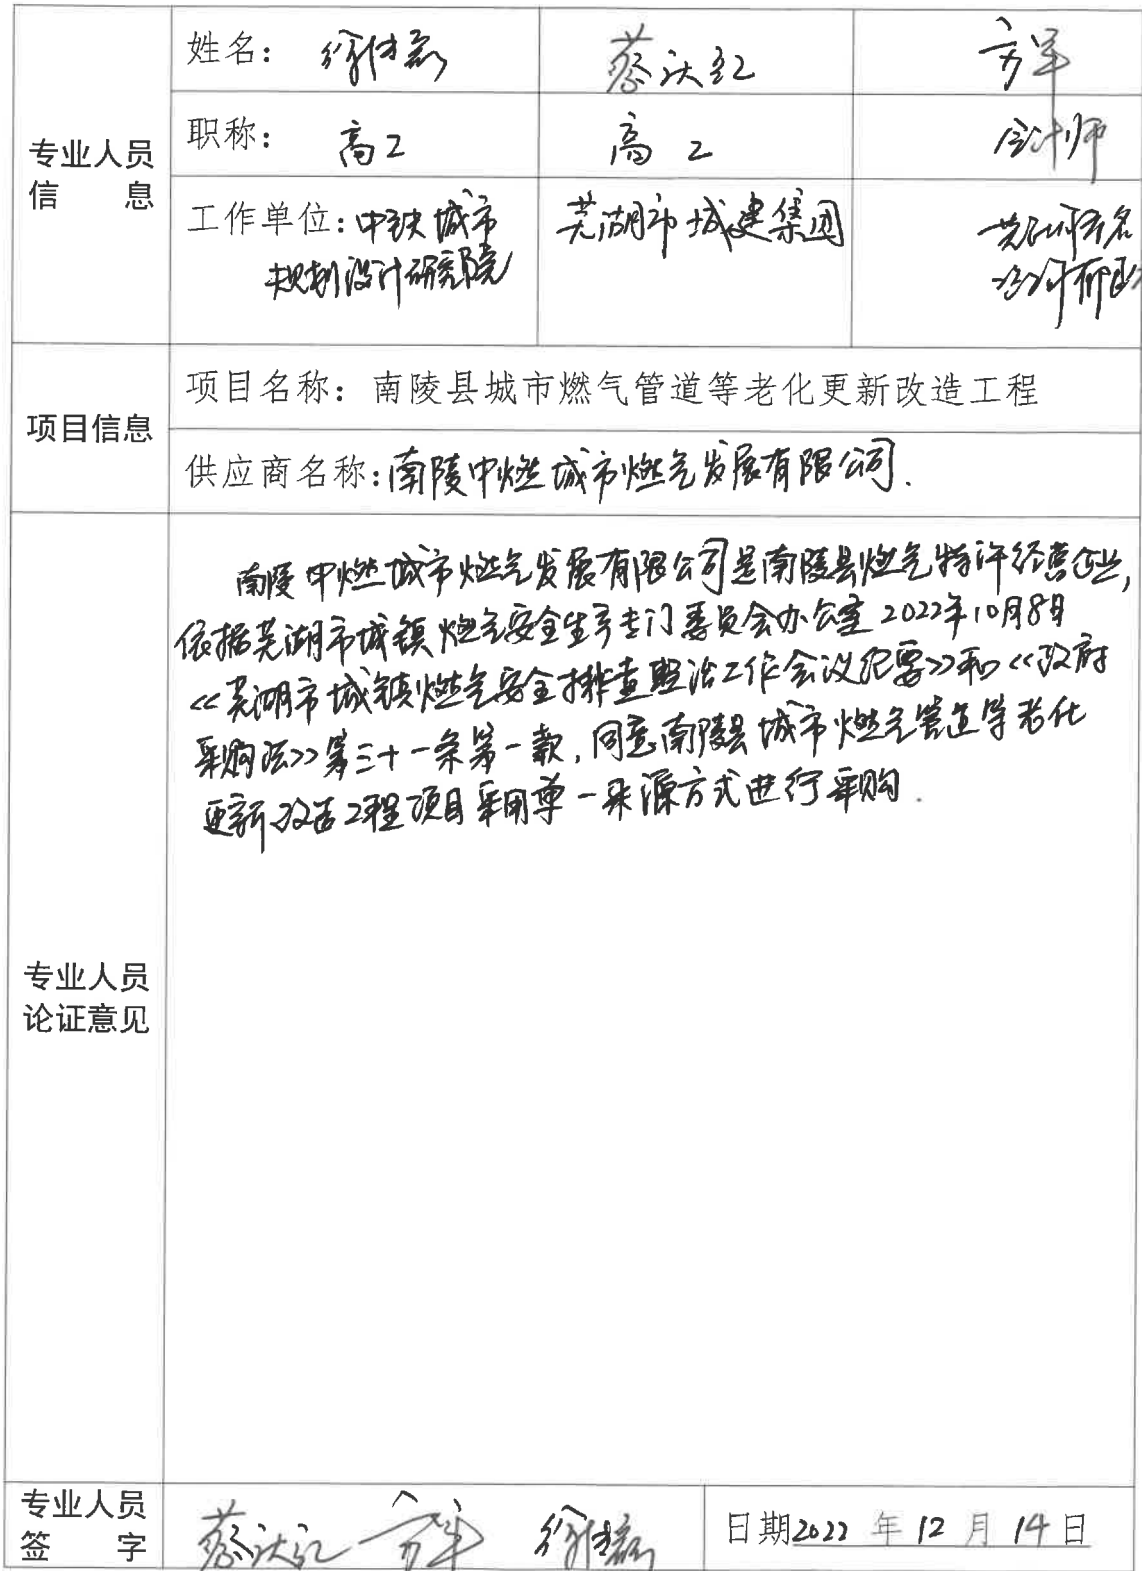 专业人员
信 息
姓名： 蔡达红
职称： 高工 高工 会计师
工作单位：中铁城市
规划设计研究院
芜湖市城建集团
项目信息
项目名称：南陵县城市燃气管道等老化更新改造工程
供应商名称：南陵中燃城市燃气发展有限公司.
专业人员
论证意见
南陵中燃城市燃气发展有限公司是南陵县燃气特许经营企业,
依据芜湖市城镇燃气安全生产专门委员会办公室2022年10月8日
<<芜湖市城镇燃气安全排查整治工作会议纪要>>和<<政府
采购法>>第三十一条第一款,同意南陵县城市燃气管道等老化
更新改造工程项目采用单一来源方式进行采购.
专业人员
签 字
蔡达红
日期2022 年 12 月 14 日